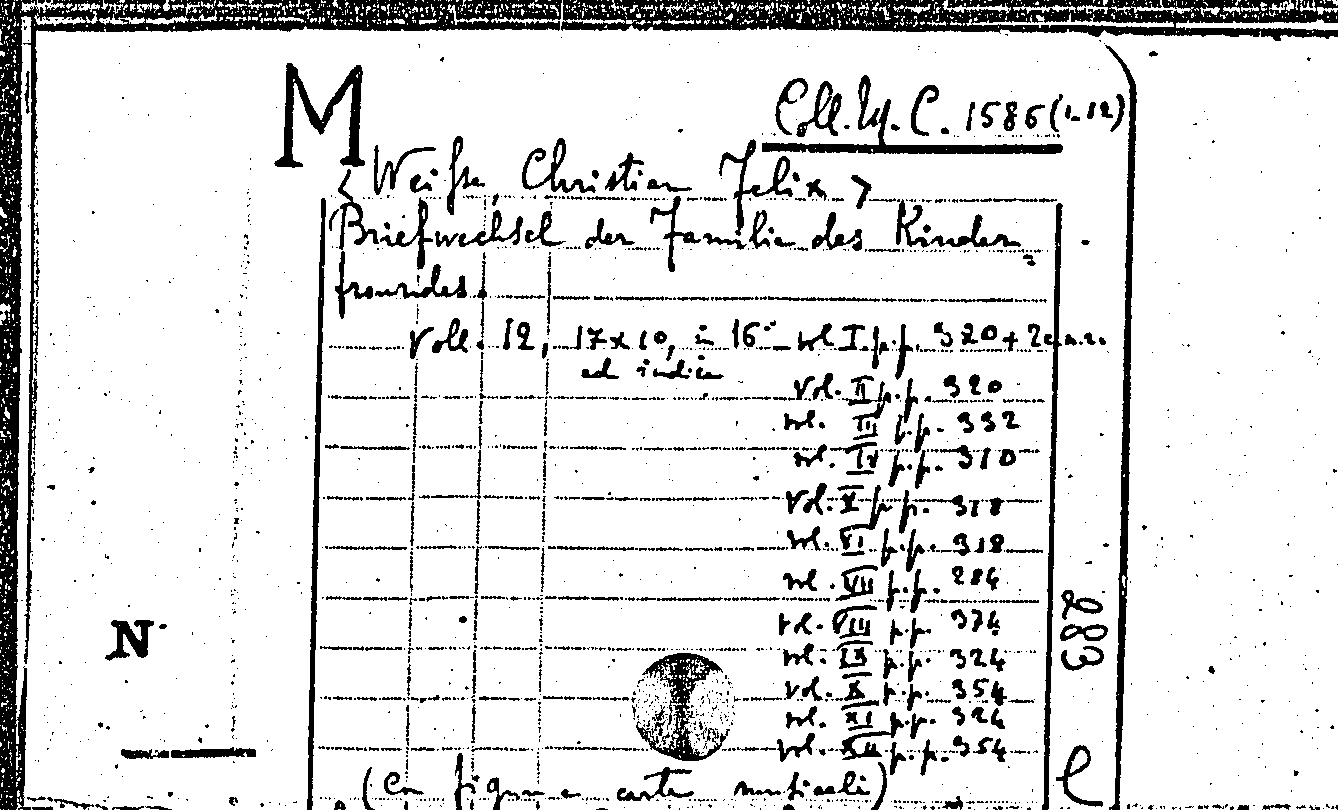 M
Coll. M. C. 1586 (1-12)
< Weisse, Christian Felix >
Briefwechsel der Familie des Kinder=
freundes.
Voll. 12, 17x10, in 16° - vol I. p.p. 320 + 2 c.n.n.
ed indice
Vol. II p.p. 320
vol. III p.p. 332
vol. IV p.p. 310
Vol. V p.p. 318
vol. VI p.p. 318
vol. VII p.p. 284
vol. VIII p.p. 374
vol. IX p.p. 324
vol. X p.p. 354
vol. XI p.p. 324
vol. XII p.p. 354
283
N
(Con figure e carte musicali)